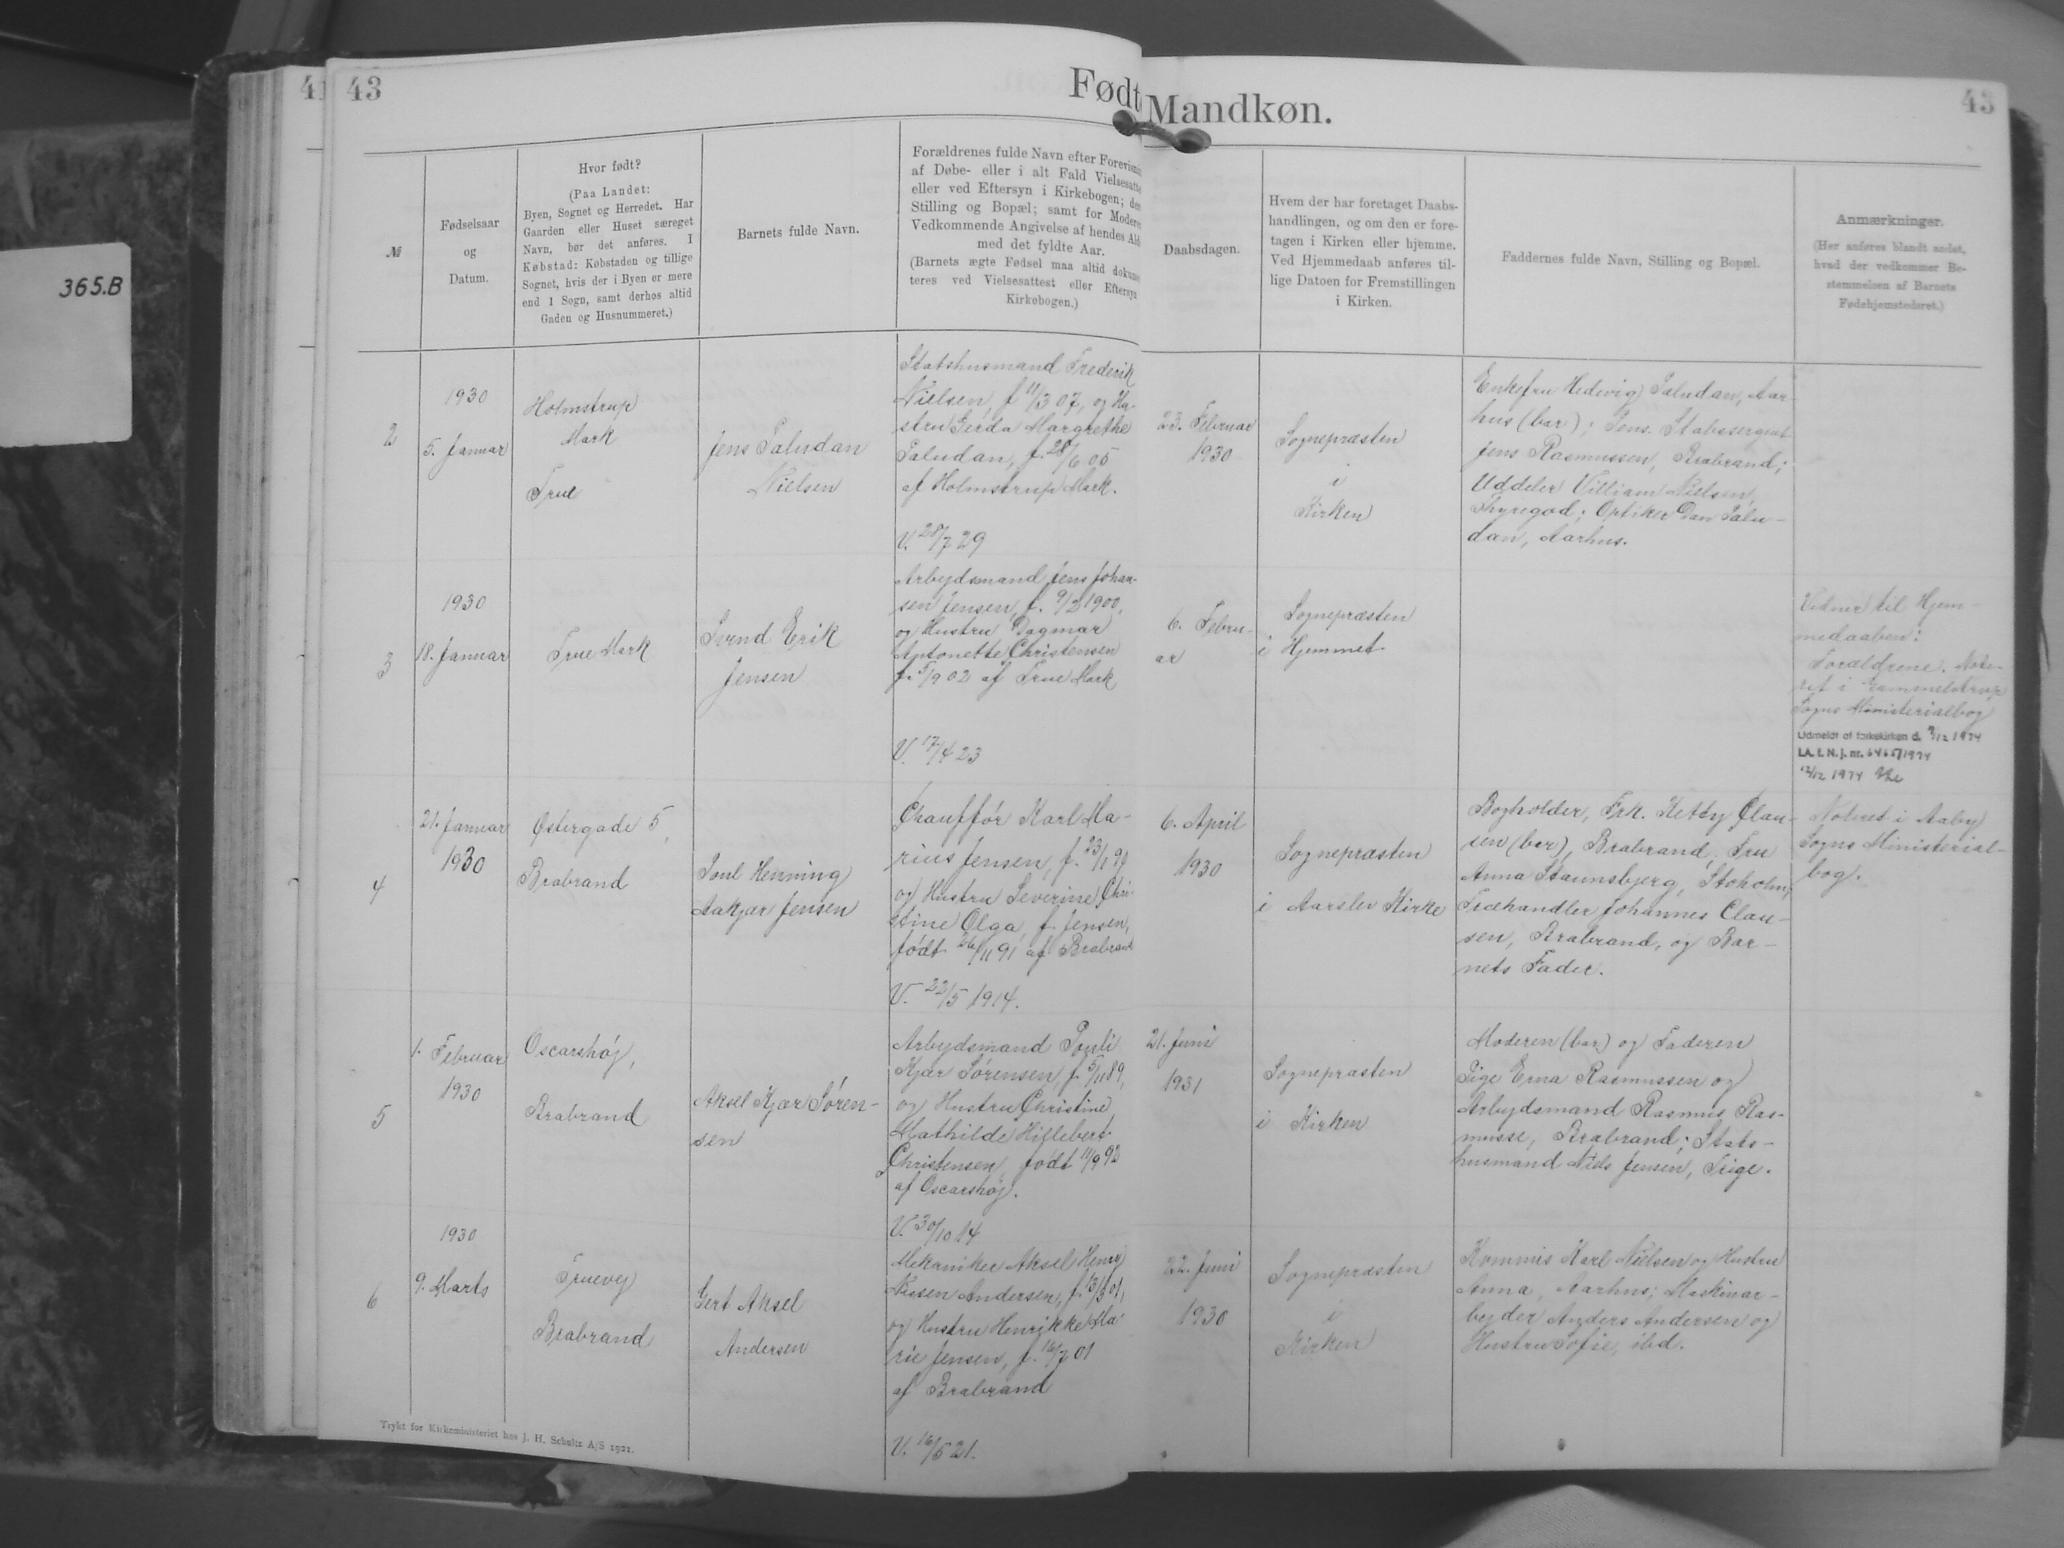 365.B
41
43
Født
Mandkøn.
43
№
Fødselsaar
og
Datum.
Hvor født?
(Paa Landet:
Byen, Sognet og Herredet. Har
Gaarden eller Huset særeget
Navn, bør det anføres. I
Købstad: Købstaden og tillige
Sognet, hvis der i Byen er mere
end 1 Sogn, samt derhos altid
Gaden og Husnummeret.)
Barnets fulde Navn.
Forældrenes fulde Navn efter Forevisning
af Døbe- eller i alt Fald Vielsesatte
eller ved Eftersyn i Kirkebogen; der
Stilling og Bopæl; samt for Moderen
Vedkommende Angivelse af hendes Ald
med det fyldte Aar.
(Barnets ægte Fødsel maa altid dokume
teres ved Vielsesattest eller Eftersyn
Kirkebogen.)
Daabsdagen.
Hvem der har foretaget Daabs-
handlingen, og om den er fore-
tagen i Kirken eller hjemme.
Ved Hjemmedaab anføres til-
lige Datoen for Fremstillingen
i Kirken.
Faddernes fulde Navn, Stilling og Bopæl.
Anmærkninger.
(Her anføres blandt andet,
hvad der vedkommer Be-
stemmelsen af Barnets
Fødehjemstedsret.)
2
1930
5. Januar
Holmstrup
Mark
True
Jens Paludan
Nielsen
Statshusmand Frederik
Nielsen, f 11/3 07, og Hu-
stru Gerda Margrethe
Paludan, f. 28/6 05
af Holmstrup Mark.
V. 28/7 29
23. Februar
1930
Sognepræsten
i
Kirken
Enkefru Hedevig Paludan, Aar-
hus (bar); Pens. Stabssergent
Jens Rasmussen, Brabrand;
Uddeler Villiam Nielsen,
Thyregod; Optiker Dan Palu-
dan, Aarhus.
3
1930
18. Januar
True Mark
Svend Erik
Jensen
Arbejdsmand Jens Johan-
sen Jensen, f. 9/2 1900,
og Hustru Dagmar
Antonette Christensen
f. 5/9 02 af True Mark
V. 17/4 23
6. Febru-
ar
Sognepræsten
i Hjemmet
Vidner til Hjem-
medaaben:
Forældrene. Note-
ret i Gammelstrup
Sogns Ministerialbog
Udmeldt af folkekirken d. 9/12 1974
LA. f. N. j. nr. 6465/1974
12/12 1974
4
21. Januar
1930
Østergade 5,
Brabrand
Poul Henning
Aakjær Jensen
Chauffør Karl Ma-
rius Jensen, f. 23/1 91
og Hustru Severine Chri-
stine Olga, f. Jensen,
født 26/11 91 af Brabrand
V. 22/5 1914.
6. April
1930
Sognepræsten
i Aarslev Kirke
Bogholder, Frk. Ketty Clau-
sen (bar), Brabrand, Fru
Anna Staunsbjerg, Stoholm;
Træhandler Johannes Clau-
sen, Brabrand, og Bar-
nets Fader.
Noteret i Aaby
Sogns Ministerial-
bog.
5
1. Februar
1930
Oscarshøj,
Brabrand
Aksel Kjær Søren-
sen
Arbejdsmand Pouli
Kjær Sørensen, f. 5/11 89,
og Hustru Christine
Mathilde Hillebert
Christensen, født 11/9 92
af Oscarshøj.
V. 30/10 14
21. Juni
1931
Sognepræsten
i Kirken
Moderen (bar) og Faderen
Pige Erna Rasmussen og
Arbejdsmand Rasmus Ras-
musse, Brabrand; Stats-
husmand Niels Jensen, Trige.
6
1930
9. Marts
Truevej
Brabrand
Gert Aksel
Andersen
Mekaniker Aksel Henry
Nissen Andersen, f. 13/3 01,
og Hustru Henrikke Ma-
rie Jensen, f. 16/7 01
af Brabrand
V. 16/5 21.
22. Juni
1930
Sognepræsten
i
Kirken
Kommis Karl Nielsen og Hustru
Anna, Aarhus; Maskinar-
bejder Anders Andersen og
Hustru Sofie, ibd.
Trykt for Kirkeministeriet hos J. H. Schultz A/S 1921.